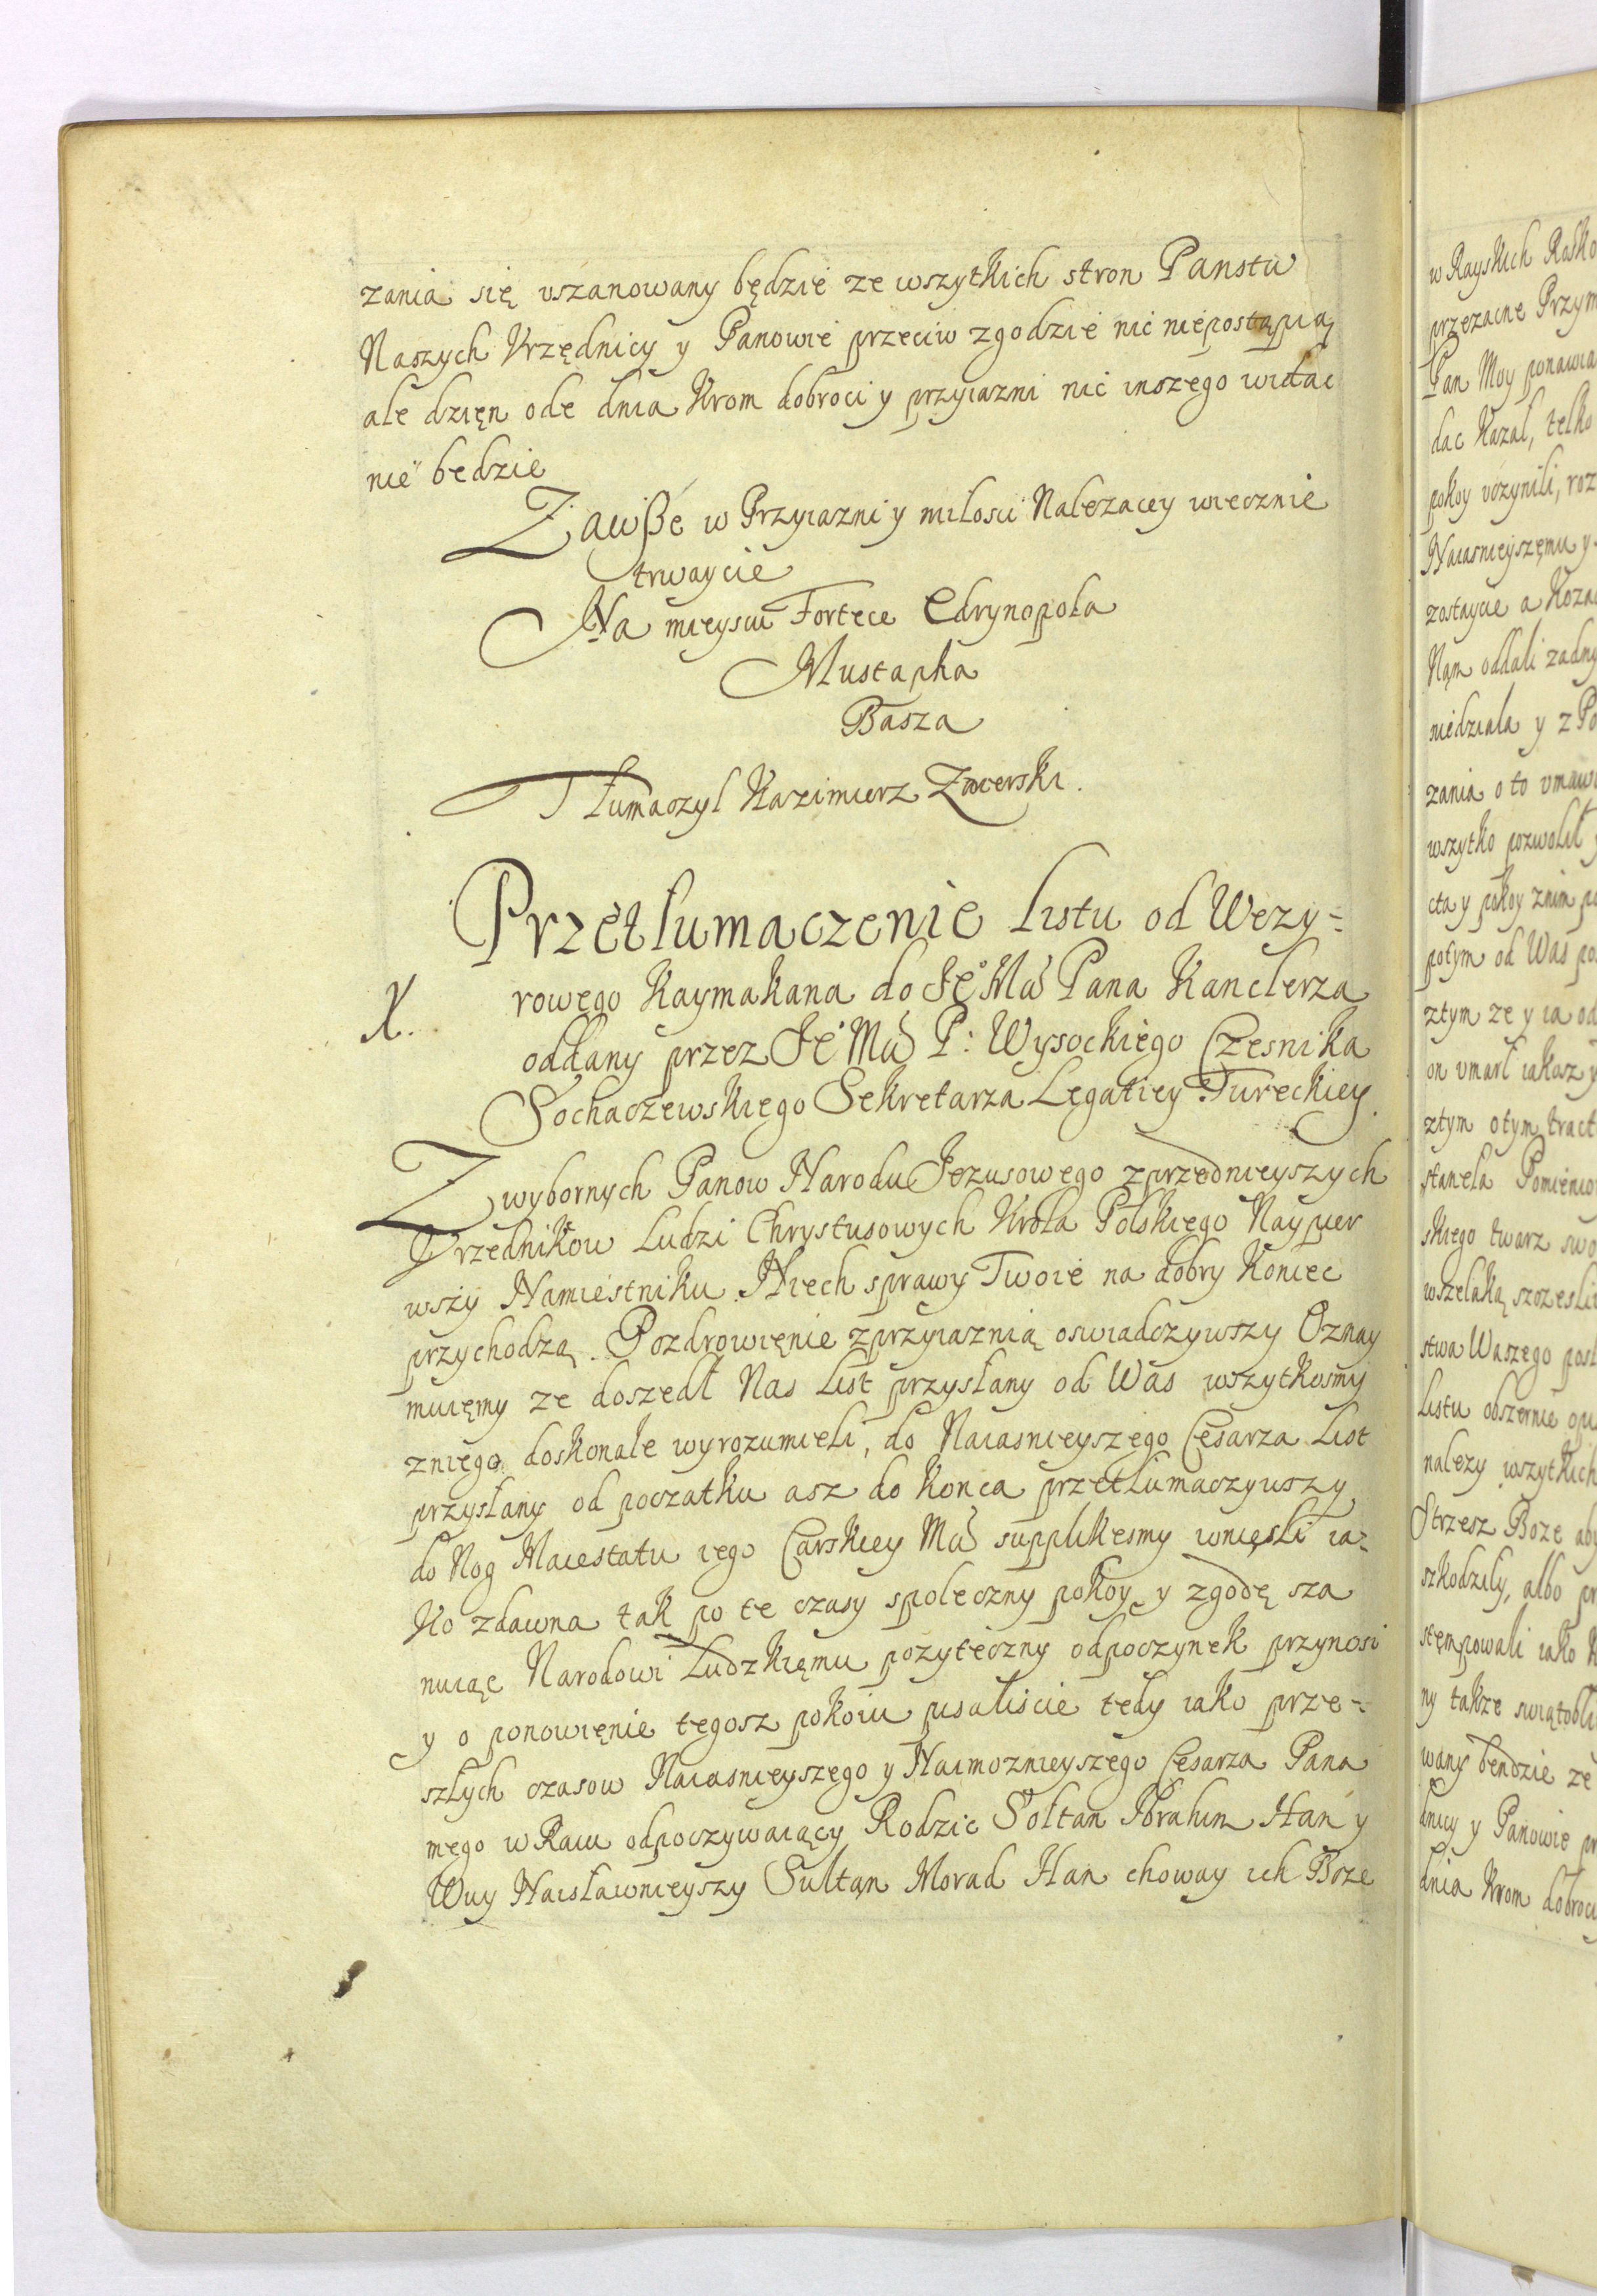 zania się vszanowany będzie ze wszytkich stron Panstw
Naszych Vrzędnicy y Panowie przeciw zgodzie nic niepostąpią
ale dzięn ode dnia Krom dobroci y przyiazni nic inszego widac
nie będzie
Zawße w Przyiazni y milosci Nalezacey wiecznie
trwaycie
Na mieyscu Fortece Edrynopola
Mustapha
Basza
Tłumaczyl Kazimierz
Przetlumaczenie listu od Wezy=
X.
rowego Kaymakana do Je° Mci Pana Kanclerza
oddany przez Je° Mci P: Wysockiego Czesnika
Sochaczewskiego Sekretarza Legatiey Tureckiey.
Z wybornych Panow Narodu Jezusowego zprzednieyszych
Vrzednikow Ludzi Chrystusowych Krola Polskiego Naypier
wszy Namiestniku. Niech sprawy Twoie na dobry Koniec
przychodzą. Pozdrowięnie zprzyiaznią oswiadczywszy Oznay
muięmy ze doszedł Nas List przysłany od Was wszytkosmy
zniego doskonale wyrozumieli, do Naiasnieyszego Cesarza List
przysłany od początku asz do Konca przetlumaczywszy
do Nog Maiestatu iego Carskiey Mci supplikesmy wnięsli ia=
Ko zdawna tak po te czasy spoleczny pokoy y zgodę sza
nuiąc Narodowi Ludzkięmu pozyteczny odpoczynek przynosi
y o ponowięnie tegosz pokoiu pisaliscie tedy iako prze=
szłych czasow Naiasnieyszego y Naimoznieyszego Cesarza Pana
mego w Raiu odpoczywaiący Rodzic Sołtan Ibrahim Han y
Wuy Naisławnieyszy Sultąn Morad Han choway ich Boze
w Rayskich
przezacne
Pan Moy
dac Kazał, telko
pokoy vczynili,
Naiasnieyszęmu y
zostaycie a
Nąm oddali
niedziala y z
zania o to
wszytko pozwolił
cta y pokoy znim
potym od Was
ztym ze y ia od
on vmarł iakasz
ztym otym
stanela
skiego twarz
wszelaką
stwa Waszego
Listu obszernie
nalezy wszytkich
Strzesz Boze
szkodziły, albo
stęmpowali iako
ny takze
wany bendzie ze
dnicy y Panowie
dnia Krom